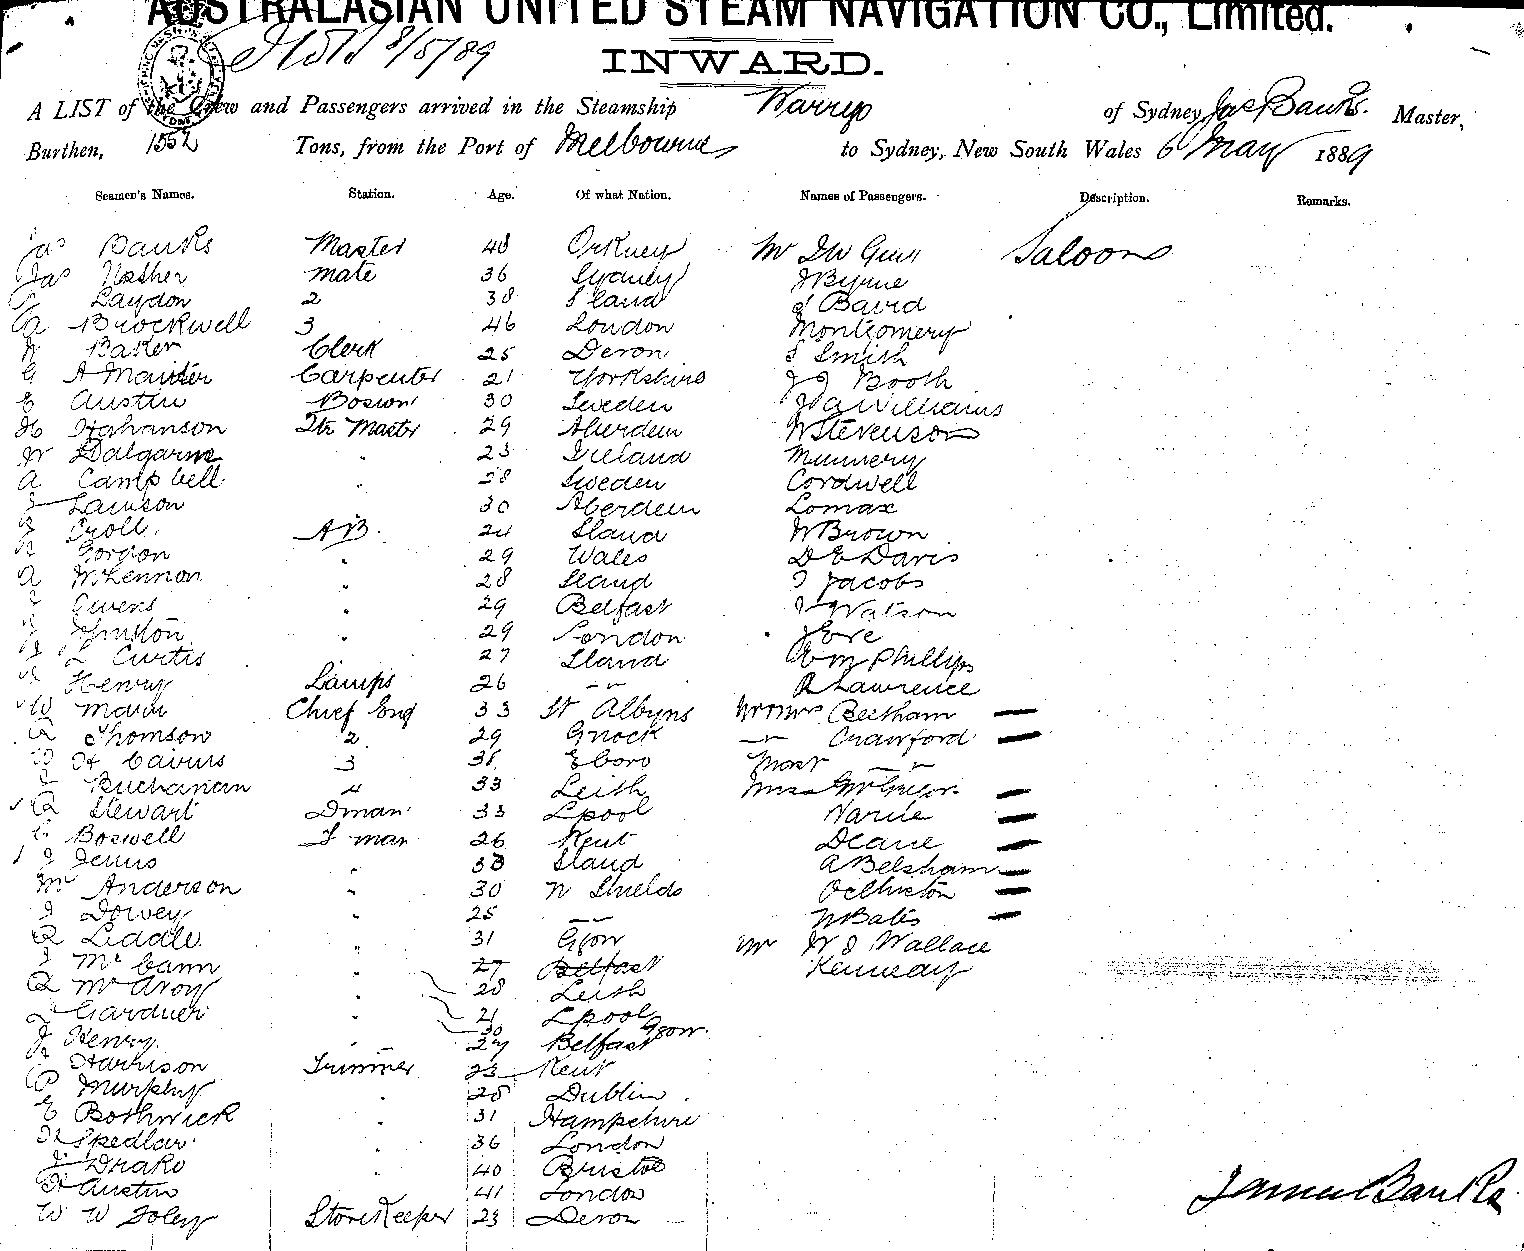 AUSTRALASIAN UNITED STEAM NAVIGATION CO., Limited.
8/5/89
INWARD.
A LIST of the Crew and Passengers arrived in the Steamship of Sydney, Jas Banks. Master,
Burthen, 1552 Tons, from the Port of Melbourne to Sydney, New South Wales 6 May 1889
Seamen's Names. Station. Age. Of what Nation. Names of Passengers. Description. Remarks.
Jas Banks Master 48 Orkney Mr Saloon
Jas mate 36 Sydney J Byrne
Laydon 2 38 Baird
A Brockwell 3 46 London Montgomery
Baker Clerk 25 Devon S Smith
G A Carpenter 21 Yorkshire Booth
E Austin Bosun 30 Sweden Williams
H Qtr Master 29 Aberdeen W Stevenson
W Dalgarne " 23 Ireland
A Campbell " 28 Sweden Cordwell
Lawson 30 Aberdeen Lomax
Croll AB 24 Sland W Brown
Gordon " 29 Wales D E Davis
A McLennon " 28 Sland Jacobs
Owens " 29 Belfast Watson
Johnston " 29 London
L Curtis 27 Sland Wm Phillips
Henry Lamps 26 -"- R Lawrence
W Chief Eng 33 St Albyns Mr & Mrs Beetham
A Thomson 2 29 Gnock -"- Crawford
H Cairns 3 38 -"-
Buchanan 4 33 Leith Miss
A Stewart Dman 33 Lpool
Boswell F man 26 Kent Deane
J 33 Sland A Belsham
Mc Anderson " 30 N Shields
J Dowey " 25 -"- Bates
A Liddle " 31 Gow Mr Wallace
J McCann " 27 Belfast Kennedy
A McAvoy " 28 Leith
Gardner " 21 Lpool
J Henry " 30 Gow
27 Belfast
Harrison Trimmer 23 Kent
P Murphy " 28 Dublin
E Bothwick " 31 Hampshire
Spedlar " 36 London
J Drake " 40 Bristol
H Austin 41 London
W W Foley StoreKeeper 23 Devon
James Banks